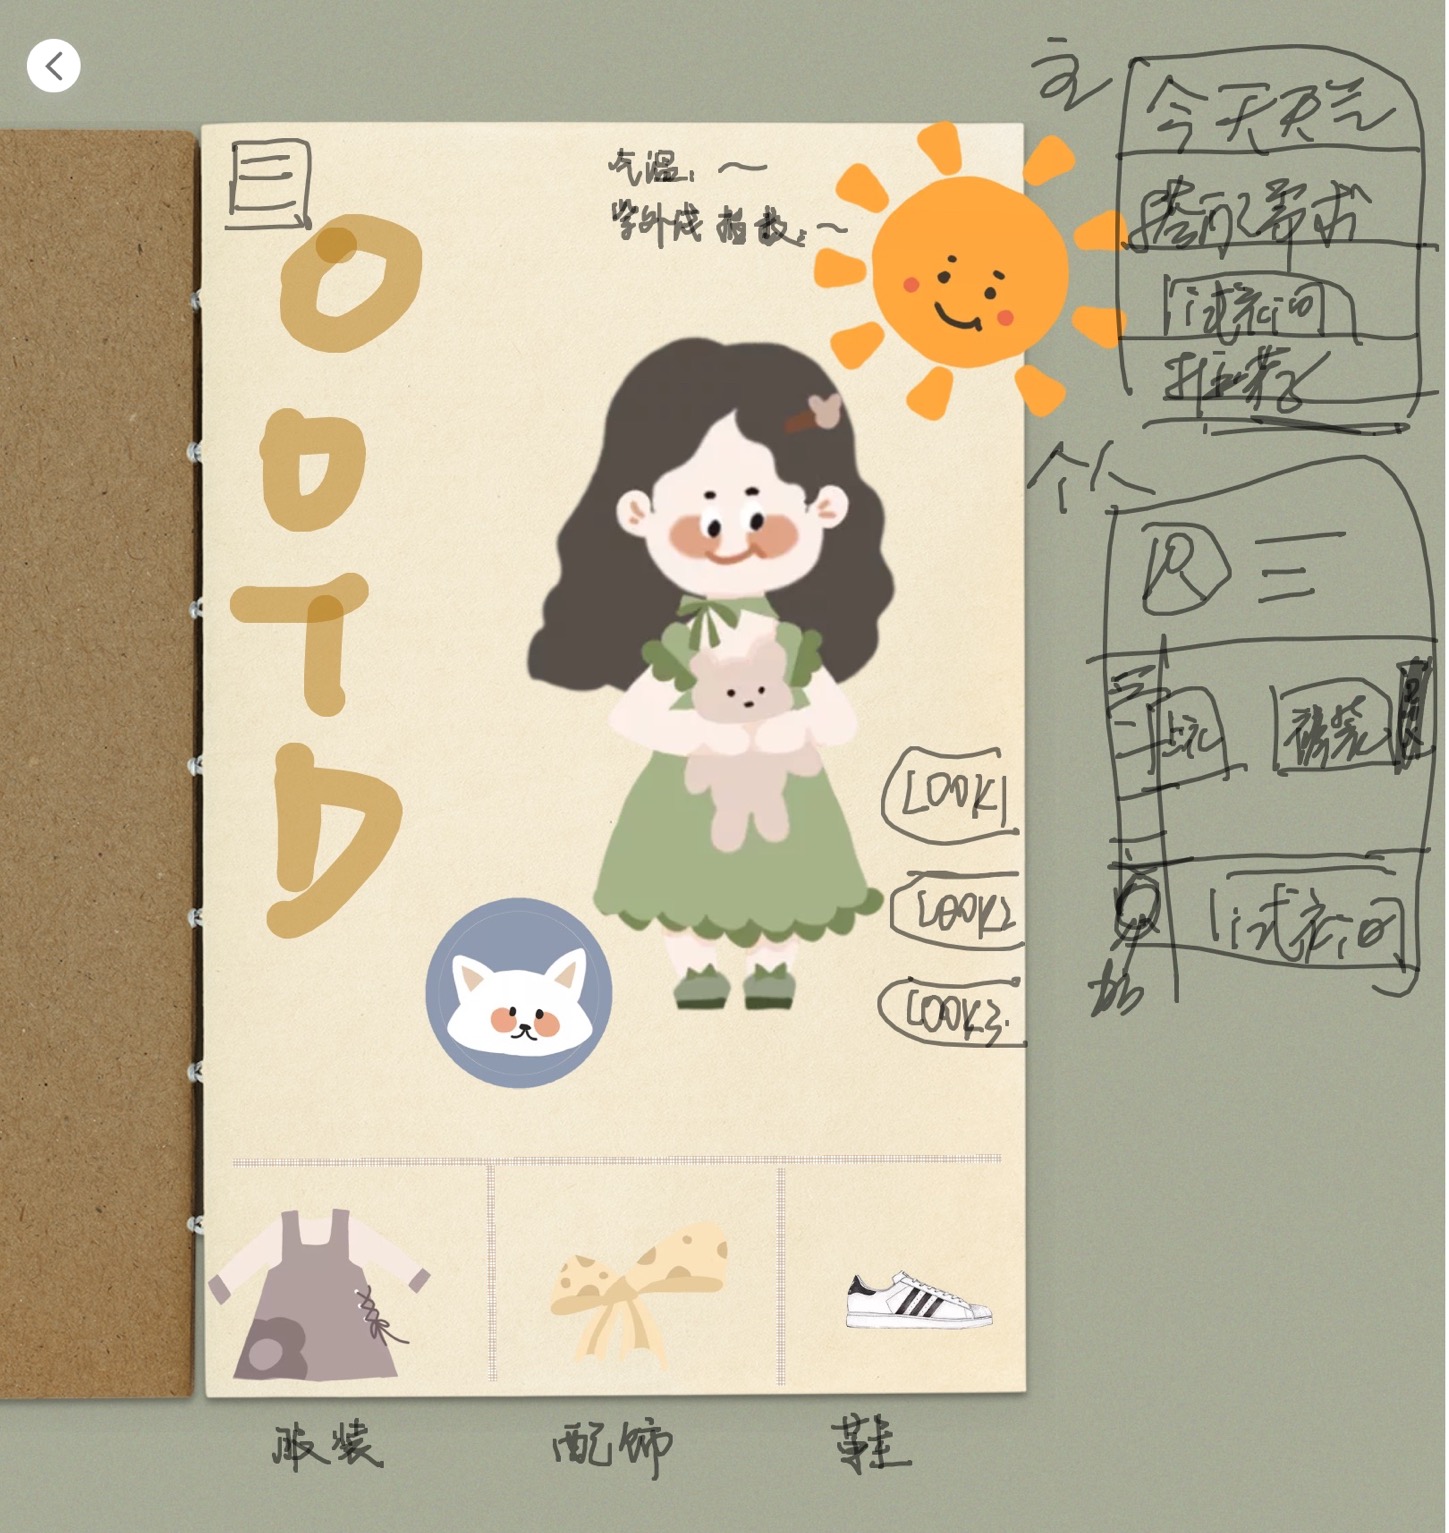 O
O
T
D
气温: ~
紫外线 指数: ~
LOOK1
LOOK2
LOOK3.
服装
配饰
鞋
主
今天天气
搭配需求
试衣间
推荐
个人
上衣
裤装
试衣间